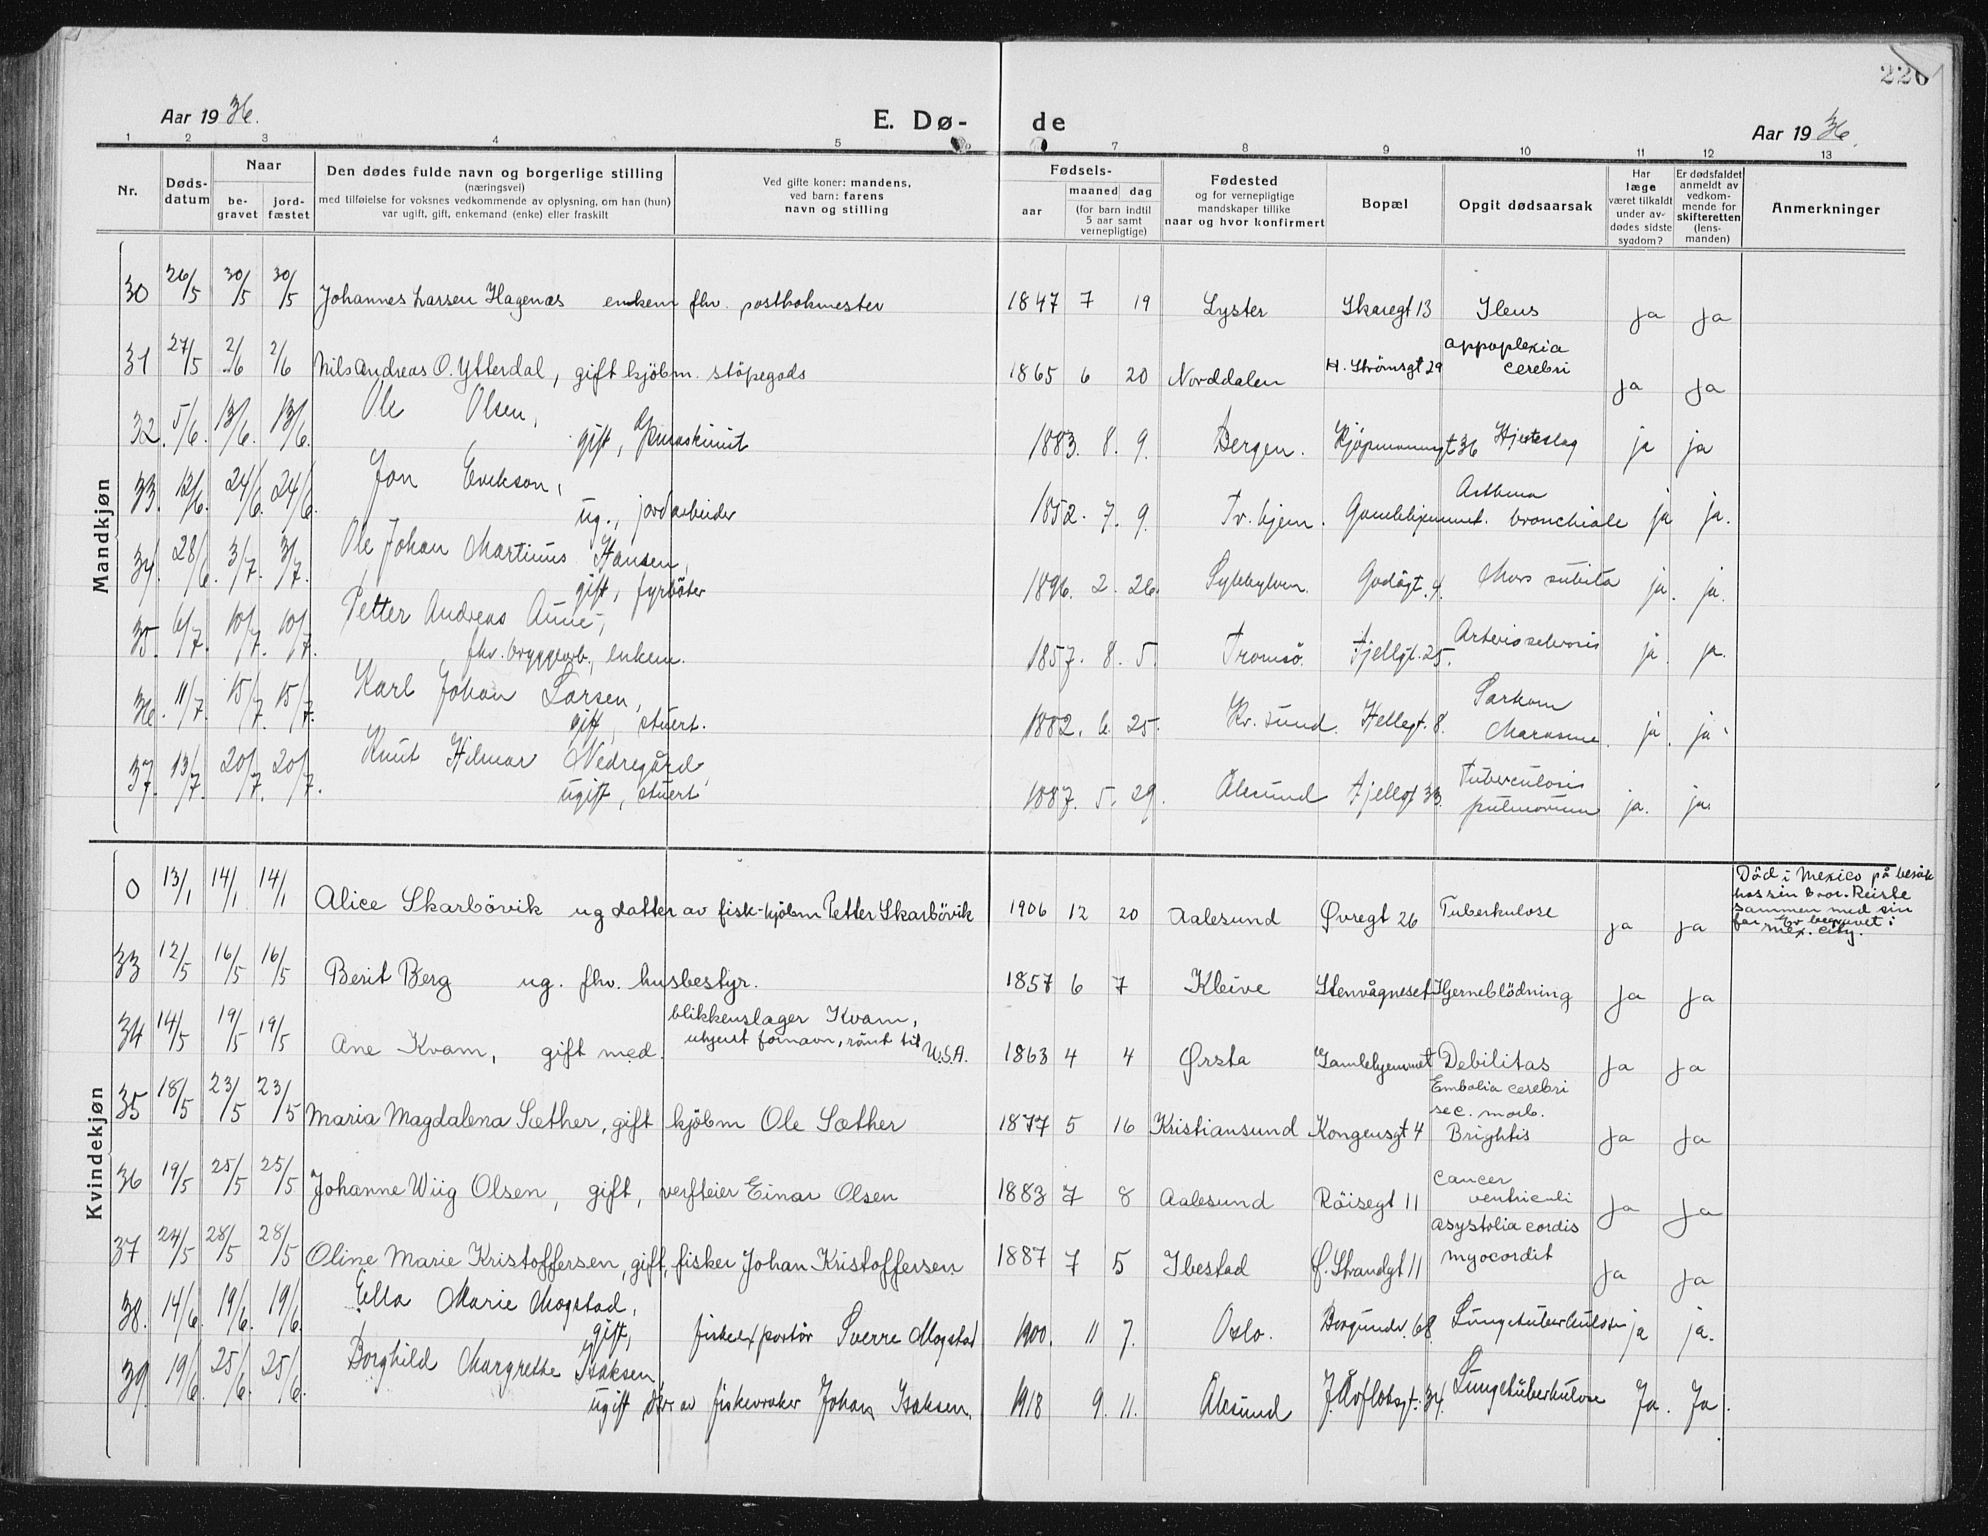 226
Aar 1936.
E. Dø-
de
Aar 1936.
1 2 3 4 5 6 7 8 9 10 11 12 13
Nr.
Døds-
datum
Naar
be-
gravet
jord-
fæstet
Den dødes fulde navn og borgerlige stilling
(næringsvei)
med tilføielse for voksnes vedkommende av oplysning, om han (hun)
var ugift, gift, enkemand (enke) eller fraskilt
Ved gifte koner: mandens,
ved barn: farens
navn og stilling
Fødsels-
aar
maaned dag
(for barn indtil
5 aar samt
vernepligtige)
Fødested
og for vernepligtige
mandskaper tillike
naar og hvor konfirmert
Bopæl
Opgit dødsaarsak
Har
læge
været tilkaldt
under av-
dødes sidste
sygdom?
Er dødsfaldet
anmeldt av
vedkom-
mende for
skifteretten
(lens-
manden)
Anmerkninger
Mandkjøn
30 26/5 30/5 30/5 Johannes Larsen Hagenæs enkem fhv. postbokmester 1847 7 19 Lyster Skaregt 13 Ileus ja ja
31 27/5 2/6 2/6 Nils Andreas O. Ytterdal, gift kjöbm. stöpegods 1865 6 20 Norddalen H. Strömsgt 29 appoplexia
cerebri ja ja
32. 5/6. 13/6. 13/6. Ole Olsen,
gift, maskinist 1883. 8. 9. Bergen. 36 Hjerteslag ja ja
33. 12/6. 24/6. 24/6. Jon Erikson,
ug., jordarbeider 1852. 7. 9. Tr. hjem. Gamlehjemmet. Asthma
bronchiale ja ja.
34. 28/6. 3/7. 3/7. Ole Johan Martinus Hansen,
gift, fyrböter 1896. 2. 26. Sykkylven. Godögt. 4. Mors subita ja. ja.
35. 6/7. 10/7. 10/7. Petter Andreas Aune,
fhv. bryggearb., enkem. 1857. 8. 5. Tromsö. Fjellgt. 25. ja. ja.
36. 11/7. 15/7. 15/7. Karl Johan Larsen,
gift, stuert. 1882. 6. 25. Kr. sund. Hellegt. 8. Sarkom
ja. ja
37. 13/7. 20/7. 20/7. Knut Hilmar Nedregård,
ugift, stuert 1887. 5. 29. Ålesund Fjellgt 33. Tuberculosis
pulmonum ja. ja.
Kvindekjøn
0 13/1 14/1 14/1 Alice Skarbövik ug datter av fisk-kjöbm Petter Skarbövik 1906 12 20 Aalesund Øvregt 26 Tuberkulose ja ja Död i Mexico på besök
hos sin bror. Reiste
sammen med sin
far. Er begravet i
Mex. City.
33 12/5 16/5 16/5 Berit Berg ug. fhv. husbestyr. 1857 6 7 Kleive Stenvågneset Hjerneblödning ja ja
34 14/5 19/5 19/5 Ane Kvam, gift med. blikkenslager Kvam,
ukjent fornavn, römt til U.S.A. 1863 4 4 Ørsta Gamlehjemmet Debilitas ja ja
35 18/5 23/5 23/5 Maria Magdalena Sæther, gift kjöbm Ole Sæther 1877 5 16 Kristiansund Kongensgt 4 Embolia cerebri
sec. morb.
Brightis ja ja
36 19/5 25/5 25/5 Johanne Wiig Olsen, gift, verfteier Einar Olsen 1883 7 8 Aalesund Röisegt 11 cancer
ventriculi ja ja
37 24/5 28/5 28/5 Oline Marie Kristoffersen, gift, fisker Johan Kristoffersen 1887 7 5 Ibestad Ø. Strandgt 11 asystolia cordis
myocordit ja ja
38. 14/6. 19/6. 19/6. Ella Marie Mogstad,
gift, fiskeexportör Sverre Mogstad 1900. 11 7. Oslo. Borgundv. 68. Lungetuberkulose ja ja.
39. 19/6. 25/6. 25/6. Borghild Margrethe Isaksen,
ugift dtr av fiskevraker Johan Isaksen. 1918 9. 11. Ålesund 34. Lungetuberkulose Ja. Ja.